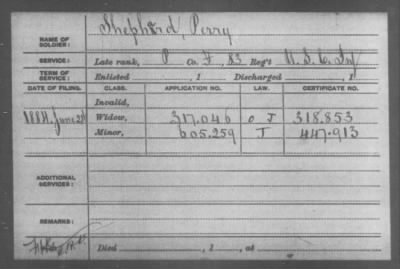 NAME OF SOLDIER: Shephard, Perry
SERVICE: Late rank, P Co. F, 83 Reg't U.S.C. Inf
TERM OF SERVICE: Enlisted , 1 Discharged , 1
DATE OF FILING. CLASS. APPLICATION NO. LAW. CERTIFICATE NO.
Invalid,
1884, June 21 Widow, 317.046 O J 318.853
Minor, 605.259 J 447.913
ADDITIONAL SERVICES:
REMARKS:
Died , 1 , at